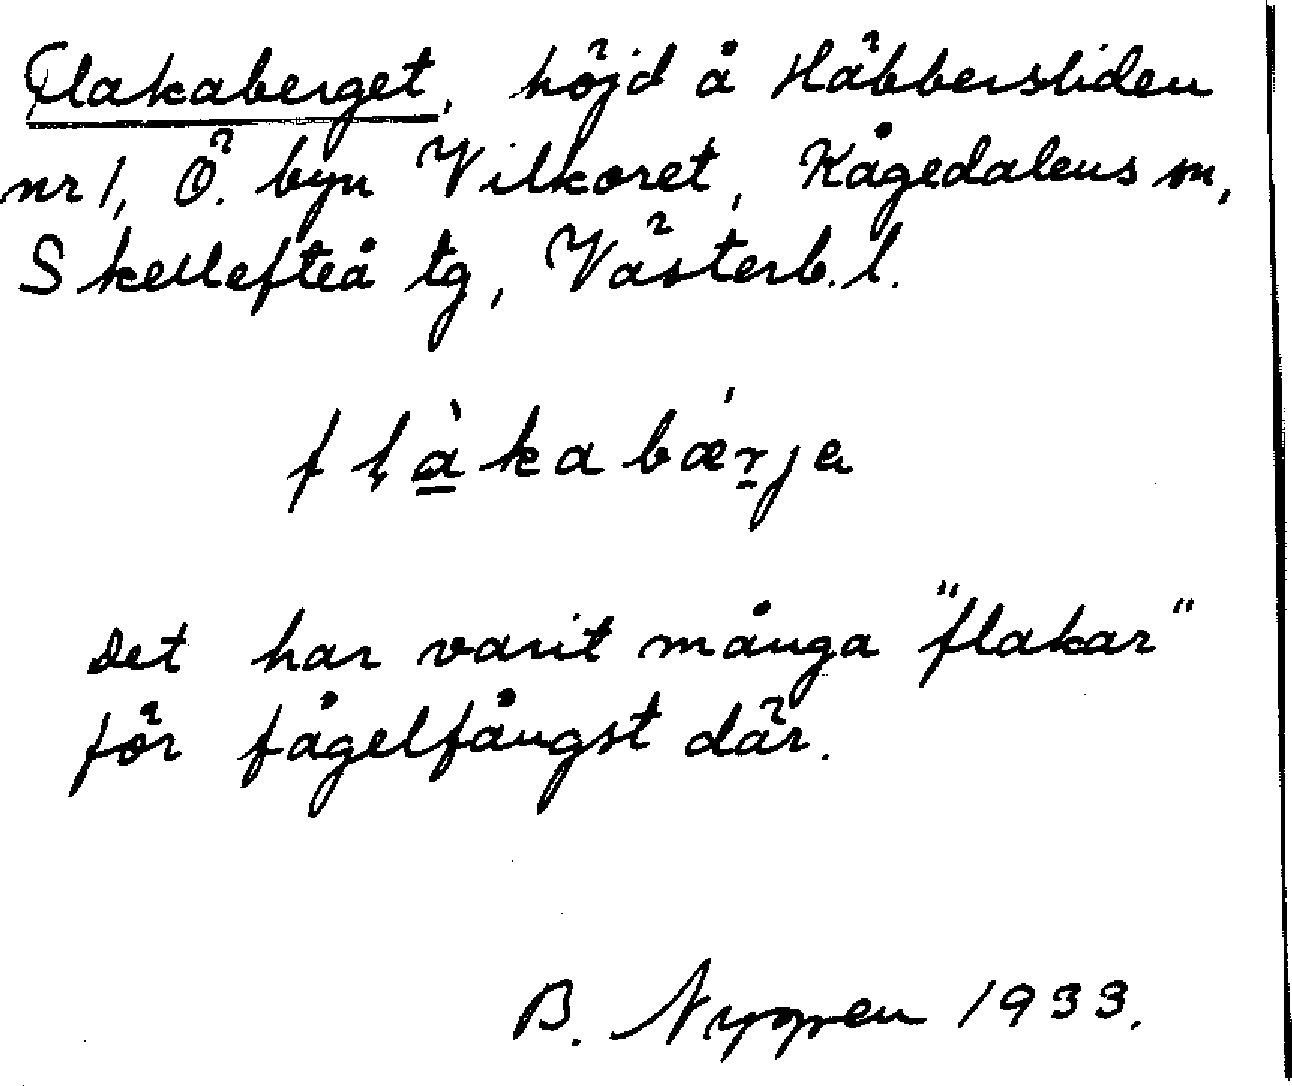 Flakaberget, höjd å Häbbersliden
nr 1, Ö. byn Vilkoret, Kågedalens m,
Skellefteå tg, Västerb. l.
fl̥à̲kabǽr̲ja
Det har varit många "flakar"
för fågelfångst där.
B. Nygren 1933.